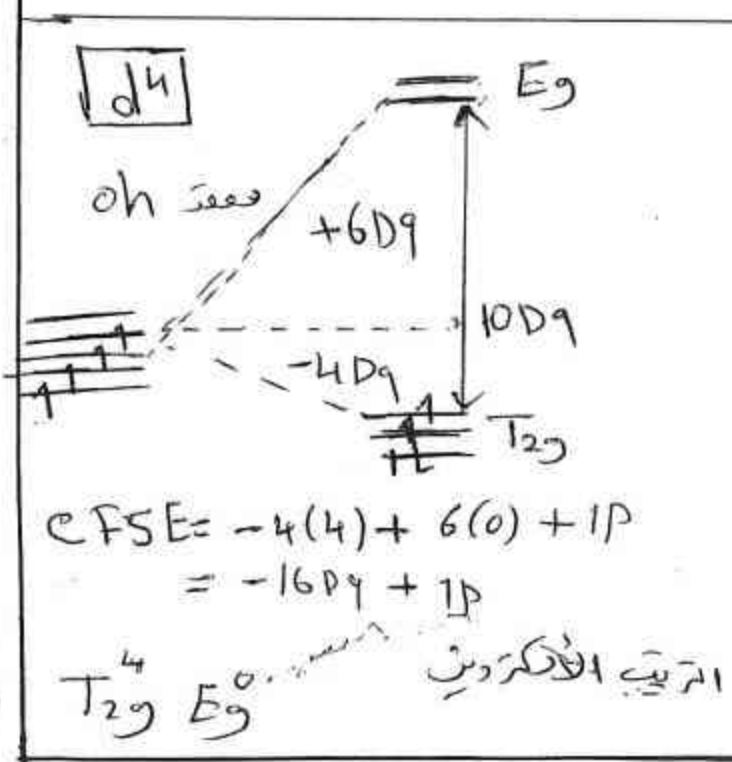 d⁴
Eg
oh
+6Dq
10Dq
-4Dq
T₂g
CFSE= -4(4)+ 6(0) + 1P
= -16Dq + 1P
T₂g⁴ Eg⁰ الترتيب الألكتروني